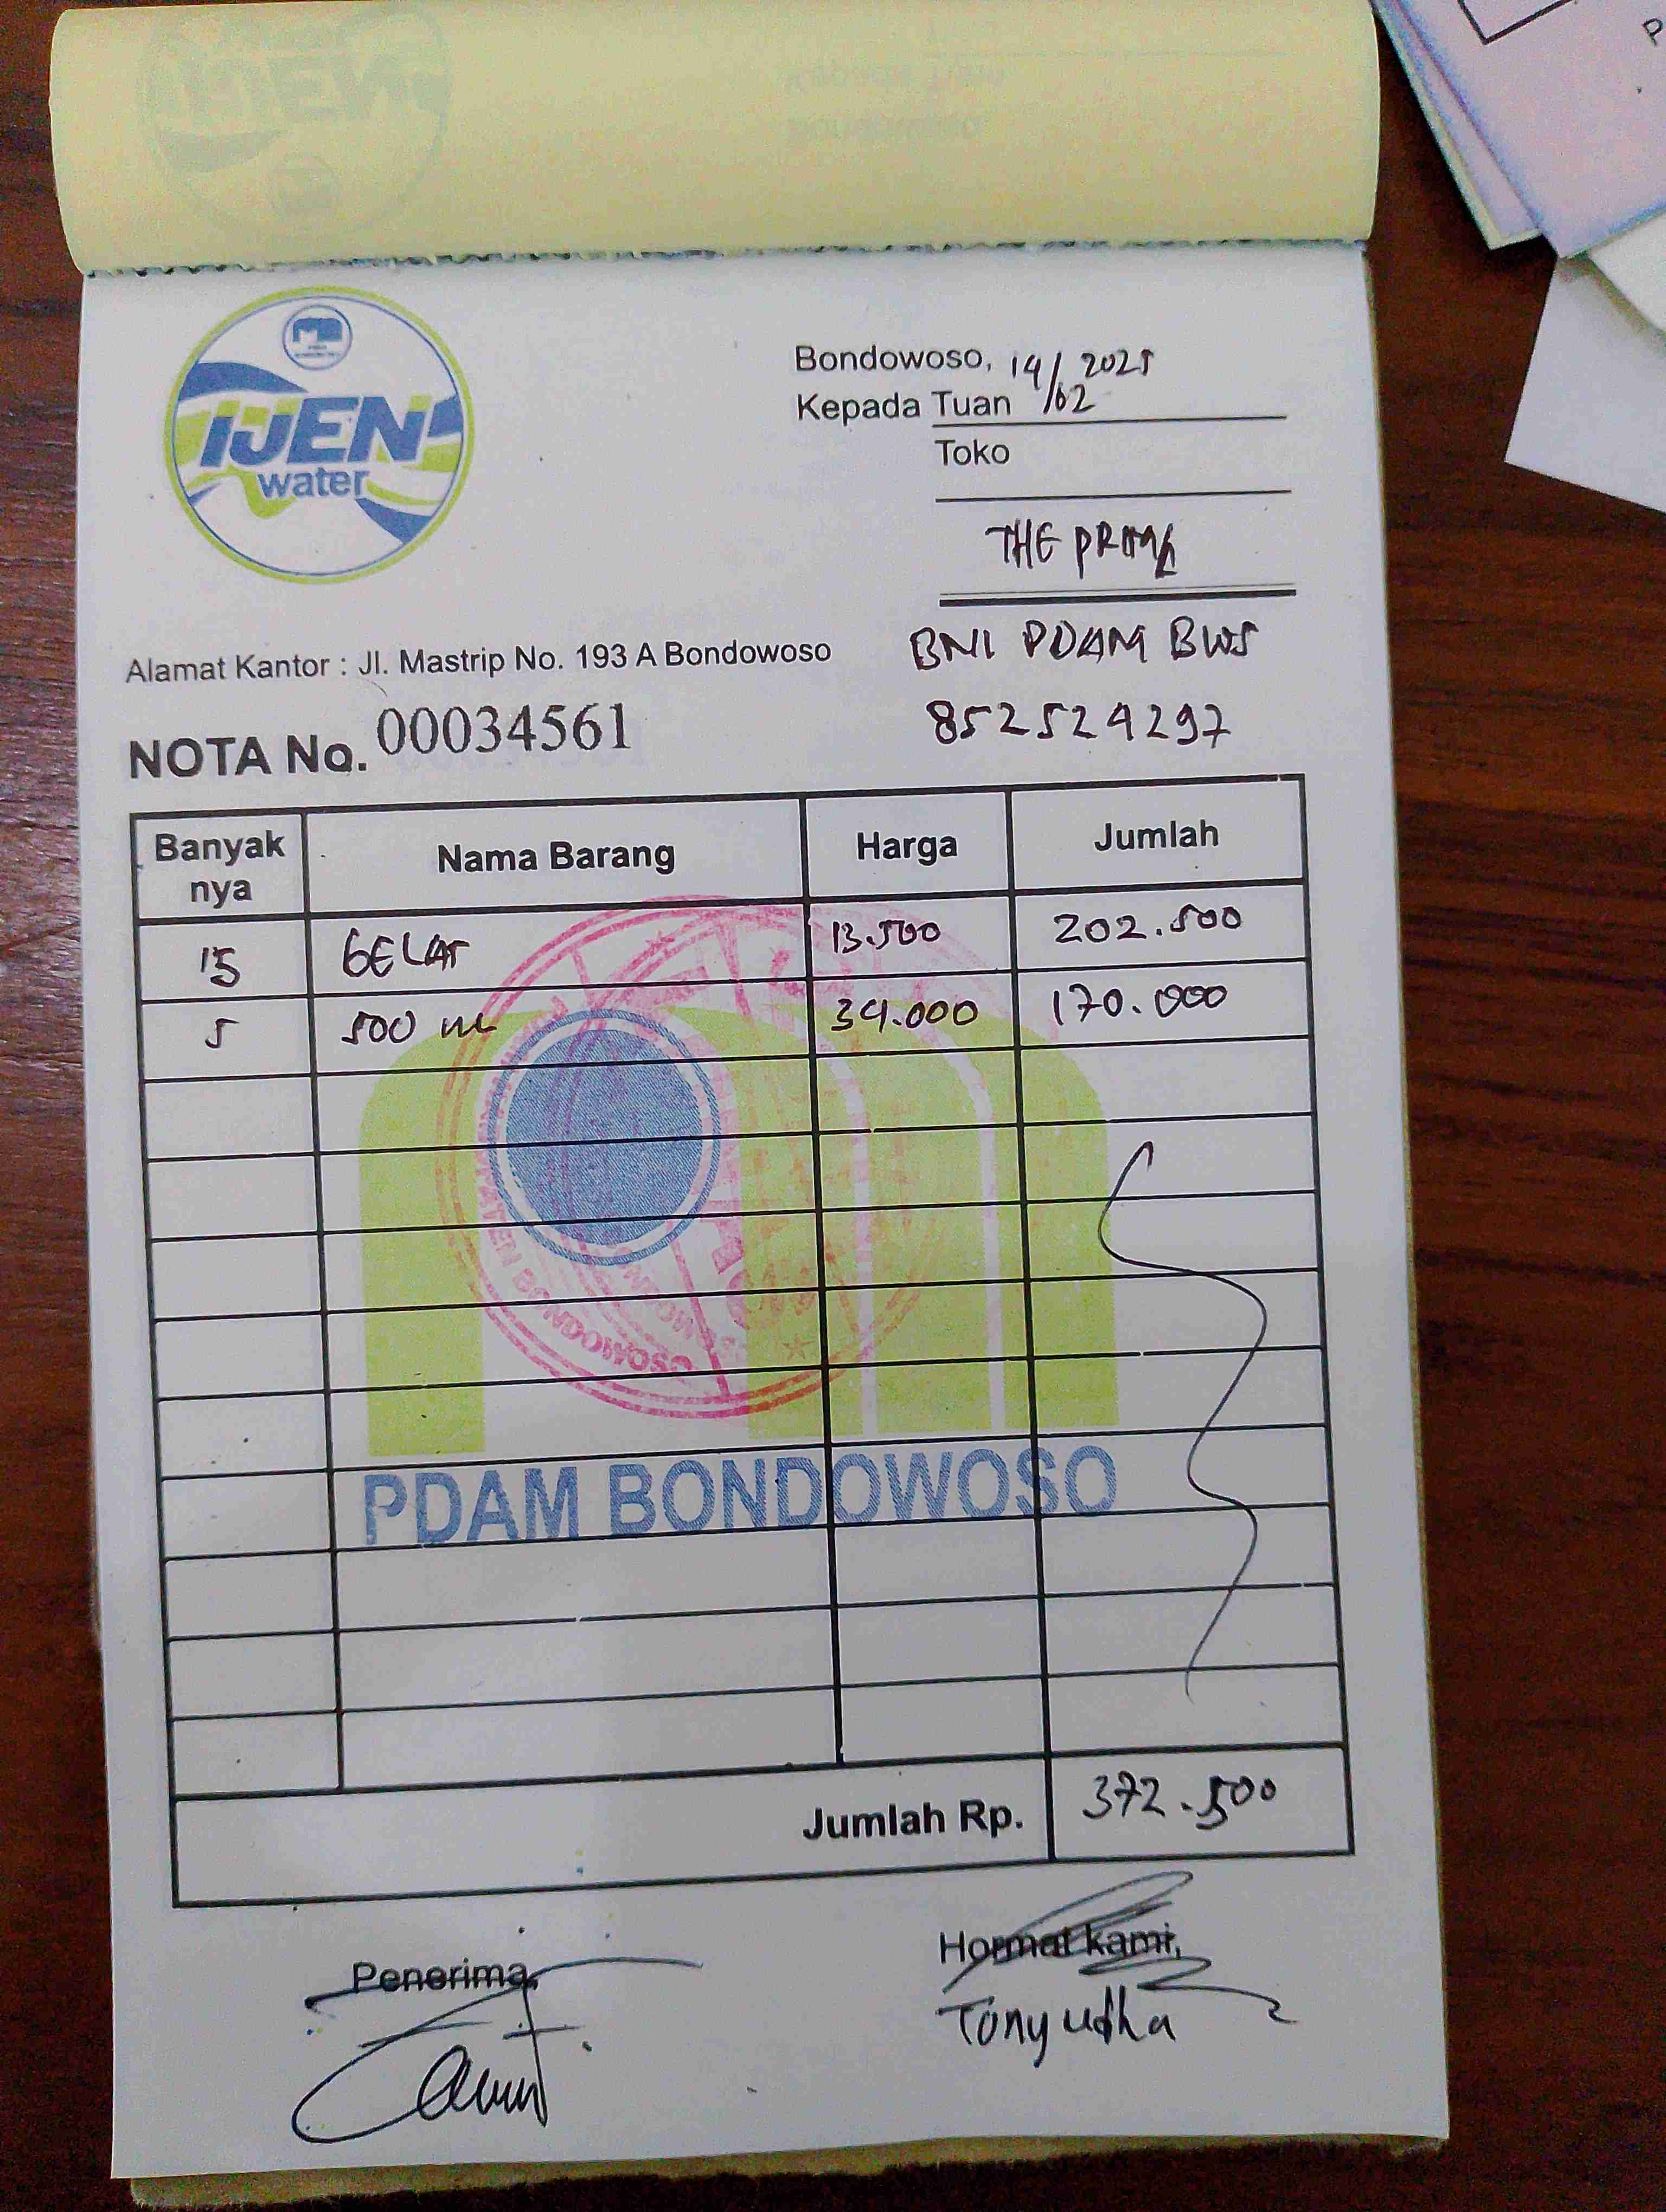 IJEN
water
Bondowoso, 14/02 2025
Kepada Tuan
Toko
THE
BNI PDAM BWS
Alamat Kantor : Jl. Mastrip No. 193 A Bondowoso
852524297
NOTA No. 00034561
Banyak nya Nama Barang Harga Jumlah
15 GELAS 13.500 202.500
5 500 ml 34.000 170.000
PDAM BONDOWOSO
Jumlah Rp. 372.500
Penerima, Hormat kami,
Tony udha